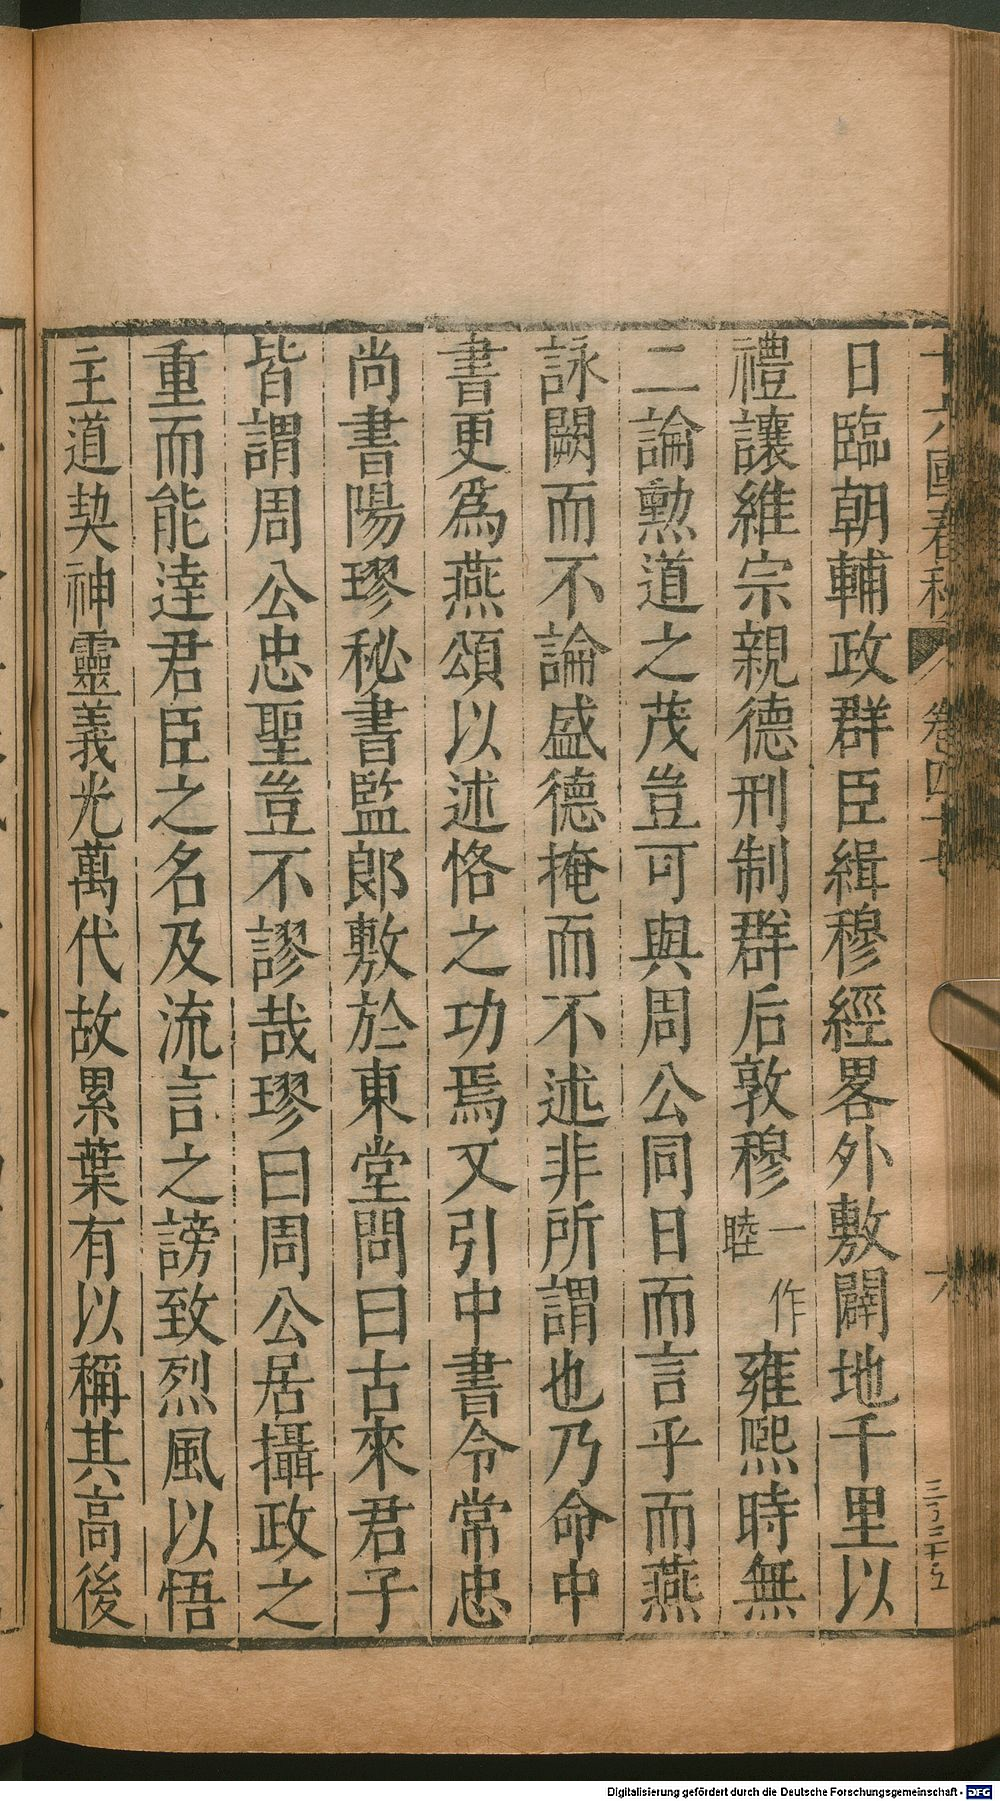 十六國春秋 卷四十七 六
日臨朝輔政群臣緝穆經畧外敷闢地千里以
禮讓維宗親德刑制群后敦穆一作睦雍熙時無
二論勲道之茂豈可與周公同日而言乎而燕
詠闕而不論盛德掩而不述非所謂也乃命中
書更爲燕頌以述恪之功焉又引中書令常忠
尚書陽璆秘書監郎敷於東堂問曰古來君子
皆謂周公忠聖豈不謬哉璆曰周公居攝政之
重而能逹君臣之名及流言之謗致烈風以悟
主道契神靈義光萬代故累葉有以稱其高後
Digitalisierung gefördert durch die Deutsche Forschungsgemeinschaft - DFG